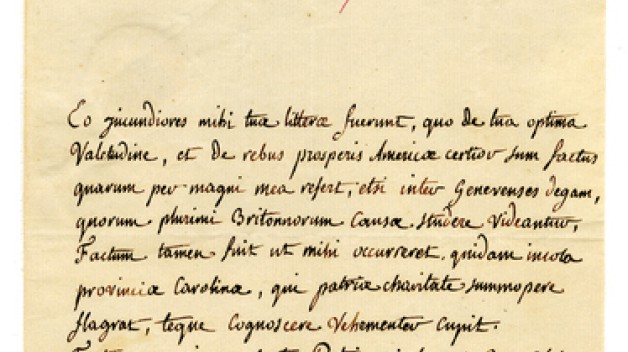 Eo jucundiores mihi tuæ litteræ fuerunt, quo de tua optima
Valetudine, et de rebus prosperis Americæ certior sum factus
quarum per magni mea refert, etsi inter Genevenses degam,
quorum plurimi Britonnorum Causæ studere Videantur,
Factum tamen fuit ut mihi occurreret quidam incola
provinciæ Carolinæ, qui patriæ charitate summopere
flagrat, teque Cognoscere Vehementer Cupit.